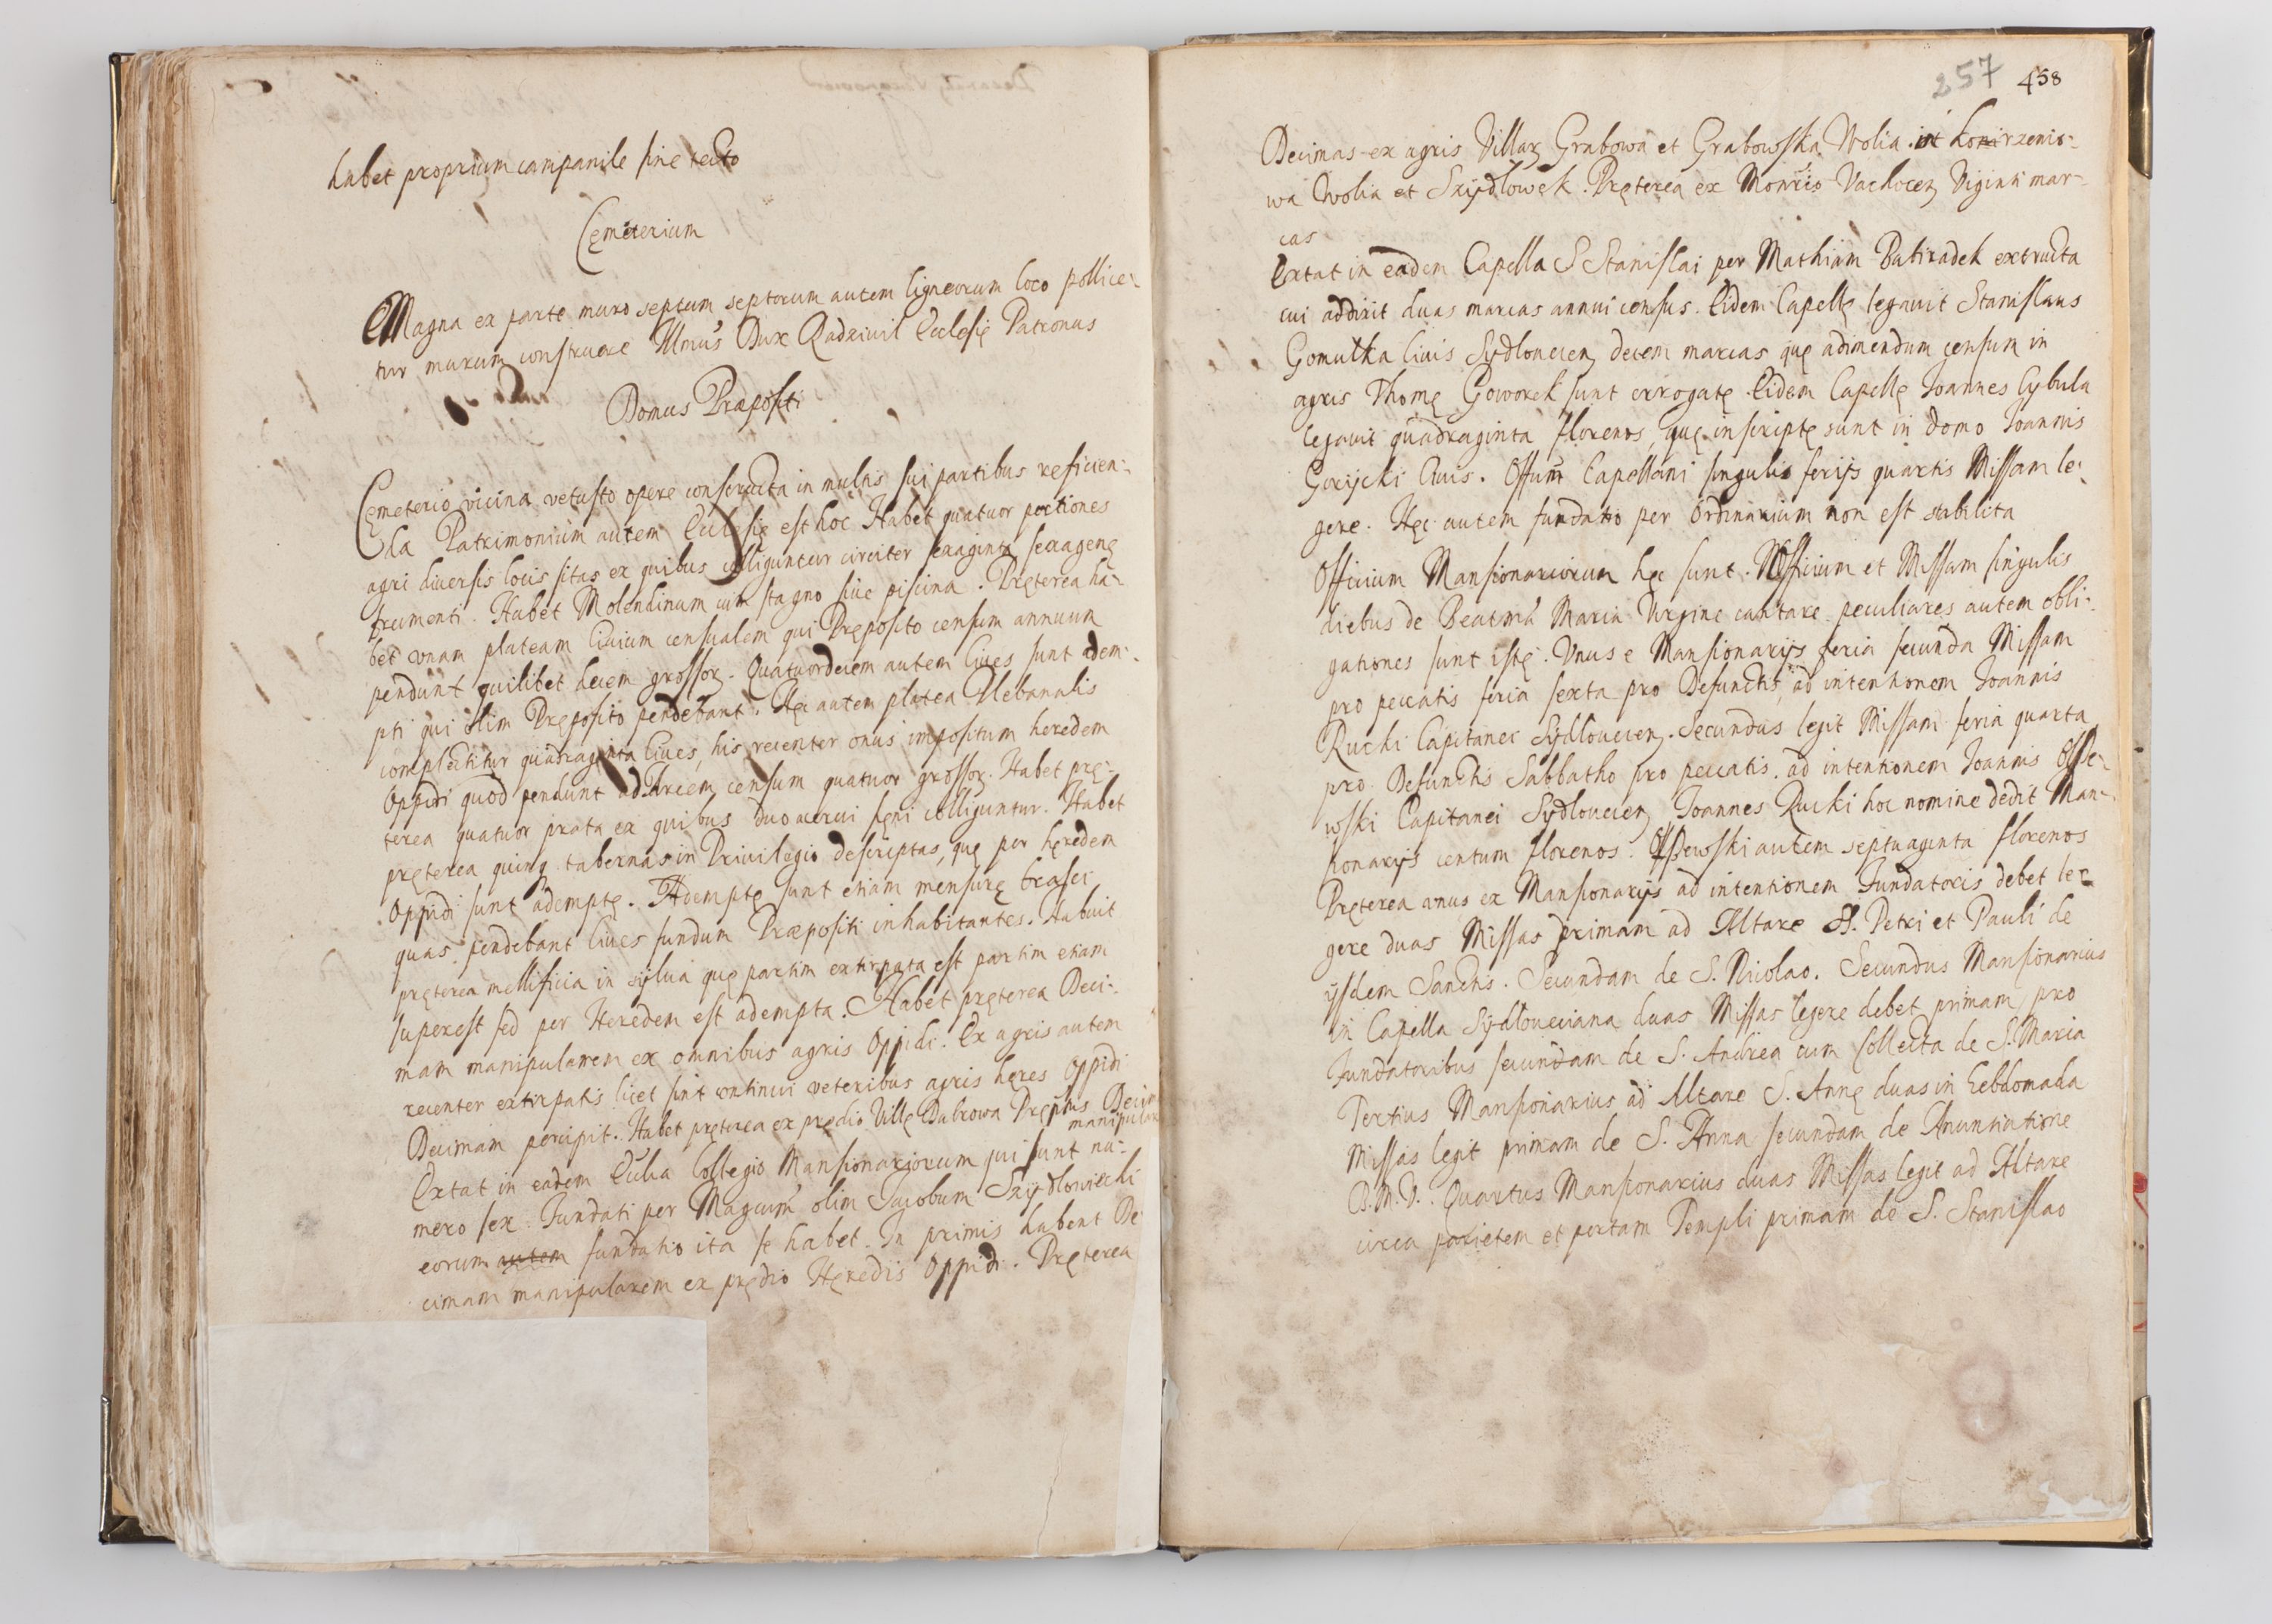 habet proprium campanile sine tecto
Cęmeterium
Magna ex parte muro septum septorum autem ligneorum loco pollice-
tur murum construere Illmus Dux Radziwil Ecclesię Patronus
Domus Præpositi
Cęmeterio vicina vetusto opere constructa in multis sui partibus reficien-
da Patrimonium autem Ecclesię est hoc Habet quatuor portiones
agri diuersis locis sitas ex quibus colliguntur circiter sexaginta sexagenę
frumenti. Habet Molendinum cum stagno siue piscina. Pręterea ha-
bet vnam plateam Ciuium censualem qui Pręposito censum annuum
pendunt quilibet decem grossoꝝ. Quatuordecim autem Ciues sunt adem-
pti qui olim Pręposito pendebant. Hęc autem platea Plebanalis
complectitur quadraginta Ciues, his recenter onus impositum heredem
Oppidi quod pendunt ad Arcem censum quatuor grossoꝝ. Habet prę-
terea quatuor prata ex quibus duo acerui fęni colliguntur. Habet
pręterea quinqꝫ tabernas in Priuilegio descriptas, quę per hęredem
Oppidi sunt ademptę. Ademptę sunt etiam mensurę brasei
quas pendebant Ciues fundum Præpositi inhabitantes. Habuit
pręterea mellificia in sylua quę partim extirpata est partim etiam
superest sed per Heredem est adempta. Habet pręterea Deci-
mam manipularem ex omnibus agris Oppidi. Ex agris autem
recenter extirpatis licet sint continui veteribus agris hęres Oppidi
Decimam percipit. Habet pręterea ex prędio Villę Dubrowa Pręptus Decim
manipular
Extat in eadem Ecclia Collegio Mansionariorum qui sunt nu-
mero sex. Fundati per Magcum olim Jacobum Szydlowiecki
eorum autem fundatio ita se habet. In primis habent De
cimam manipularem ex prędio Hęredis Oppidi. Pręterea
257 458
Decimas ex agris Villaꝝ Grabowa et Grabowska Wolia. it konirzenio-
wa Wolia et Szydlowek. Pręterea ex Monrio Vachoceꝝ Viginti mar-
cas
Extat in eadem Capella S Stanislai per Mathiam Batiradek extructa
cui addixit duas marcas annui census. Eidem Capellę legauit Stanislaus
Gomulka Ciuis Sydlouecen decem marcas quę adimendum censum in
agris Thomę Goworek sunt errogatę. Eidem Capellę Joannes Cybula
legauit quadraginta florenos, quę inscriptę sunt in domo Joannis
Gorijcki Ciuis. Offum Capellani singulis ferijs quartis Missam le-
gere. Hęc autem fundatio per Ordinarium non est stabilita
Officium Mansionariorum hęc sunt. Officium et Missam singulis
diebus de Beatma Maria Virgine cantare peculiares autem obli-
gationes sunt istę. Vnus e Mansionarijs feria secunda Missam
pro peccatis feria sexta pro Defunctis ad intentionem Joannis
Rucki Capitanei Sydlouecen. Secundus legit Missam feria quarta
pro Defunctis Sabbatho pro peccatis, ad intentionem Joannis Osse-
wski Capitanei Sydlouecen Joannes Rucki hoc nomine dedit Man-
sionarijs centum florenos. Ossewski autem septuaginta florenos
Pręterea vnus ex Mansionarijs ad intentionem Fundatoris debet le-
gere duas Missas primam ad Altare SS. Petri et Pauli de
ijsdem Sanctis. Secundam de S. Nicolao. Secundus Mansionarius
in Capella Sydloueciana duas Missas legere debet primam pro
Fundatoribus secundam de S. Andrea cum Collecta de S. Maria
Tertius Mansionarius ad Altare S. Annę duas in hebdomada
Missas legit primam de S. Anna secundam de Anuntiatione
B. M. V. Quartus Mansionarius duas Missas legit ad Altare
circa parietem et portam Templi primam de S. Stanislao